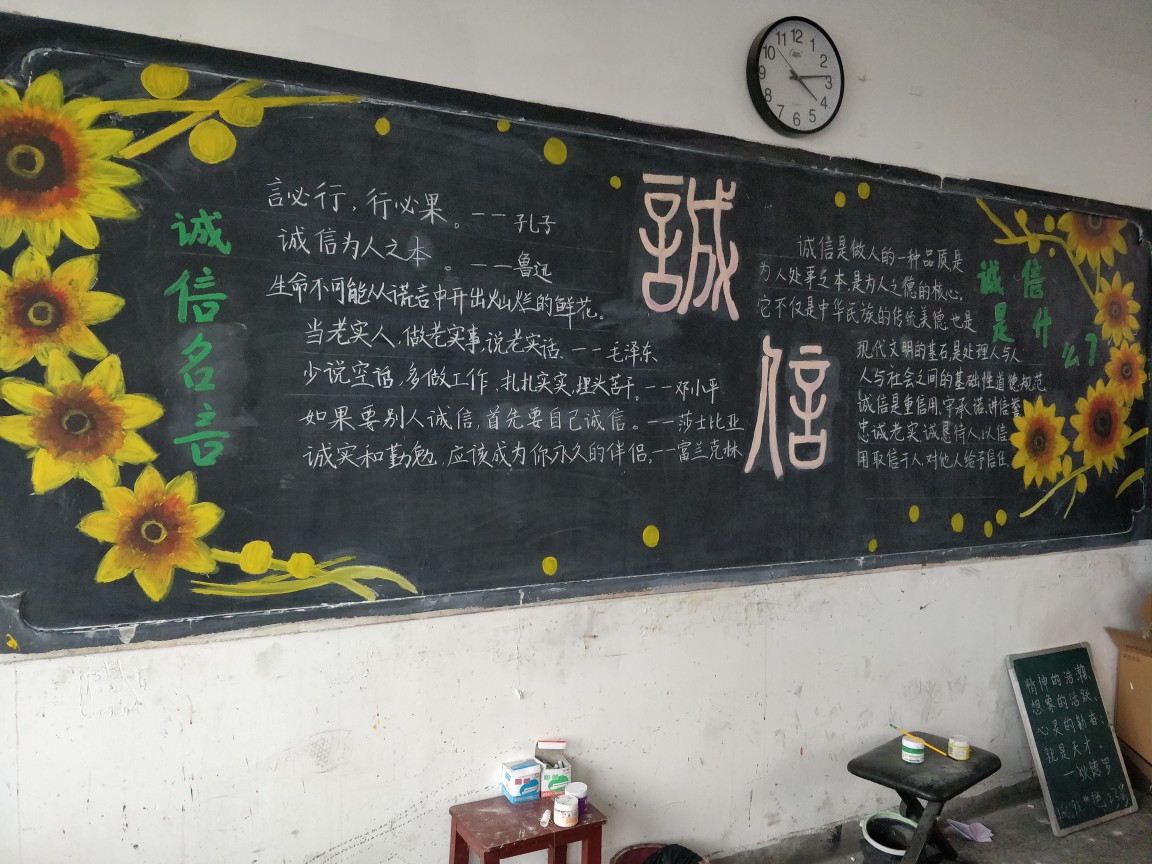 诚信名言
言必行，行必果。——孔子
诚信为人之本。——鲁迅
生命不可能从谎言中开出灿烂的鲜花。
当老实人，做老实事，说老实话、——毛泽东
少说空话，多做工作，扎扎实实，埋头苦干。——邓小平
如果要别人诚信，首先要自己诚信。——莎士比亚
诚实和勤勉，应该成为你永久的伴侣，——富兰克林
誠信
诚信是什么？
诚信是做人的一种品质是
为人处事之本，是为人之德的核心，
它不仅是中华民族的传统美德，也是
现代文明的基石，是处理人与人
人与社会之间的基础性道德规范
诚信是重信用、守承诺、讲信誉
忠诚老实，诚恳待人，以信
用取信于人，对他人给予信任
12 1 2 3 4 5 6 7 8 9 10 11
精神的浩瀚、
想象的活跃、
心灵的勤奋：
就是天才。
——狄德罗